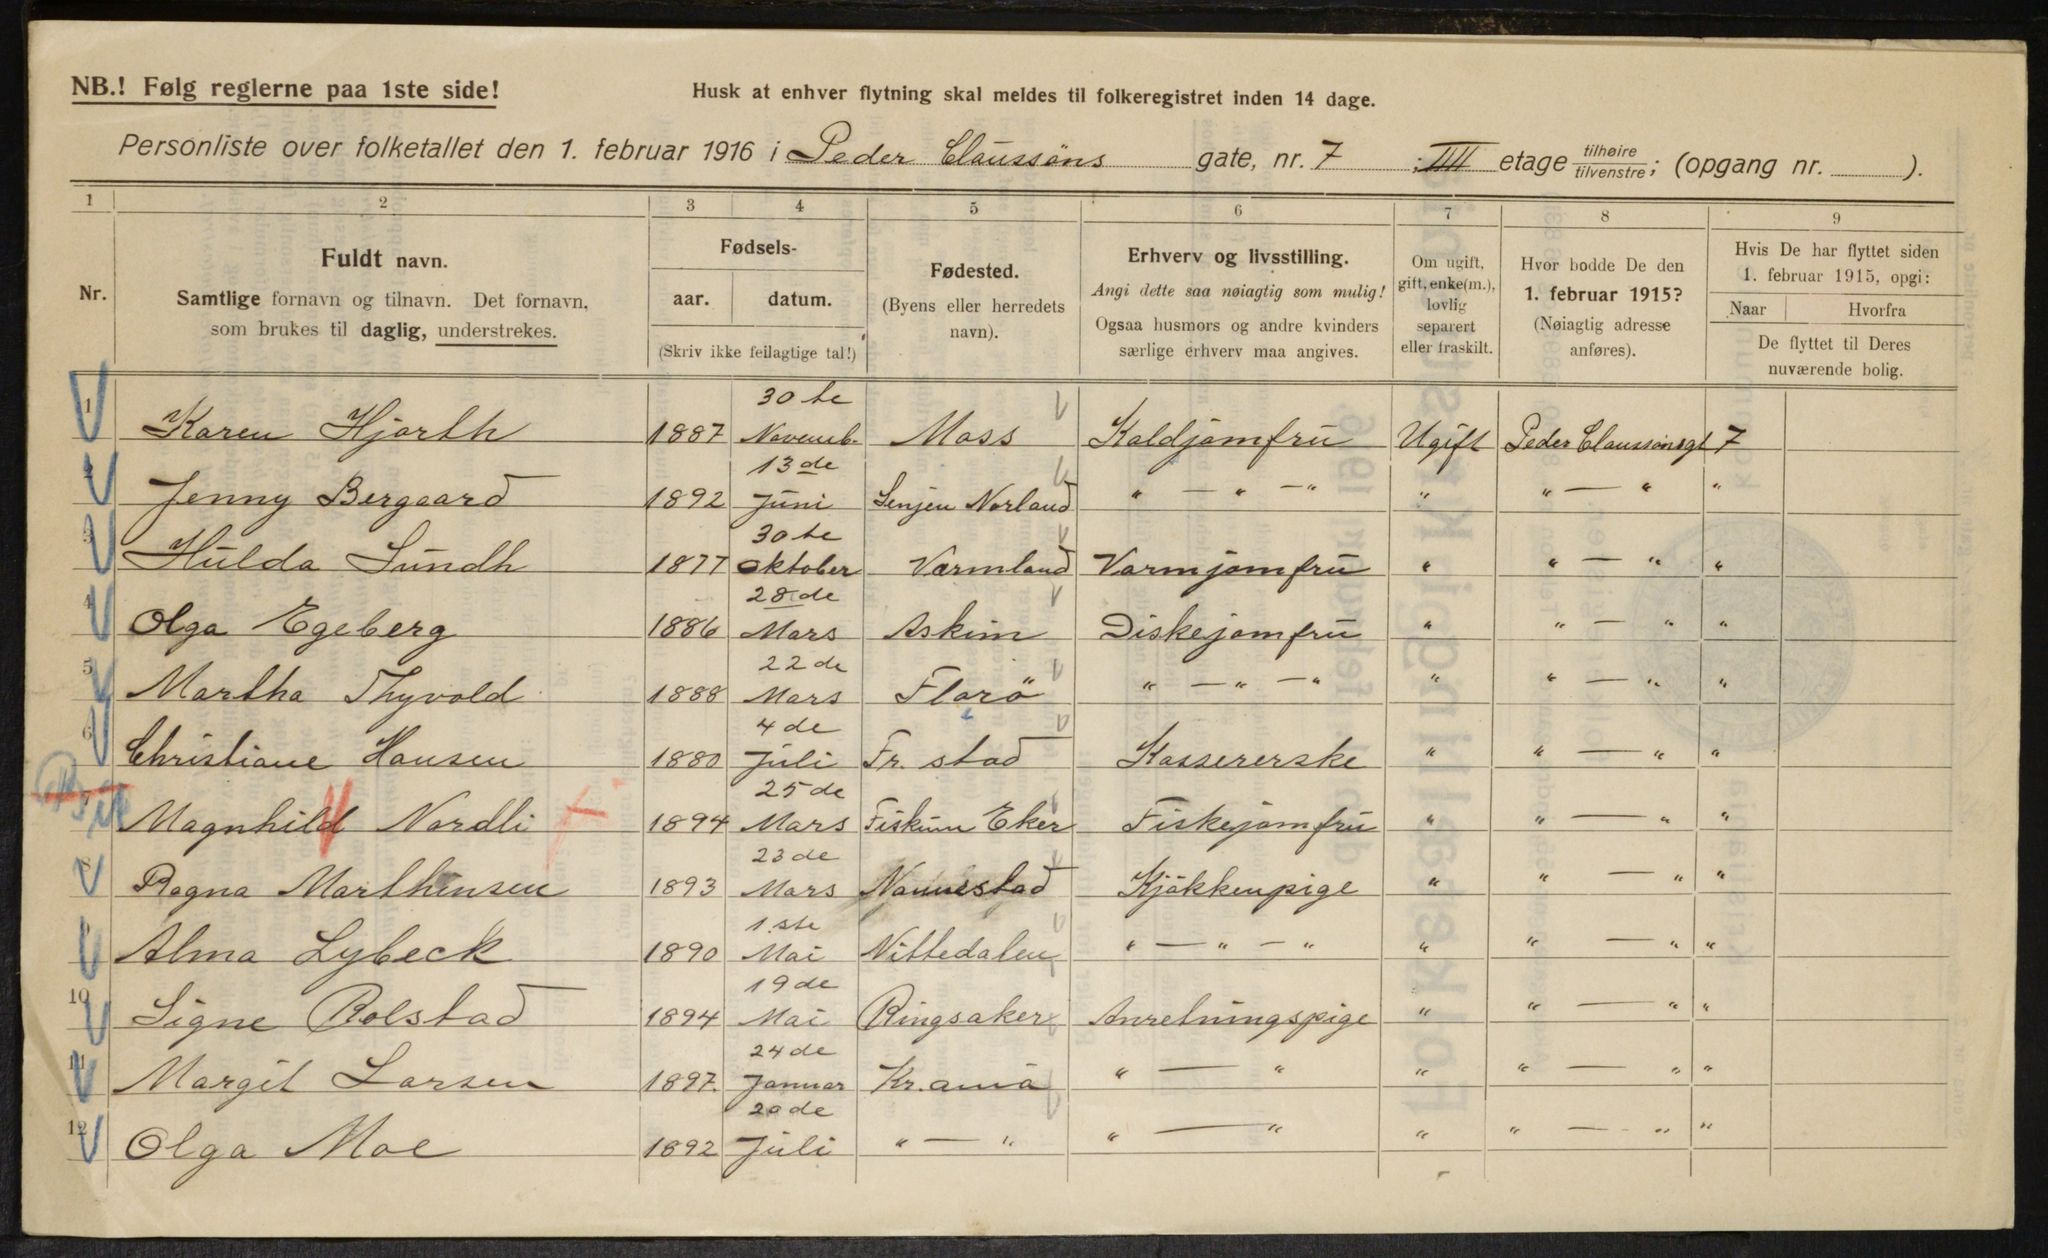 NB.! Følg reglerne paa 1ste side!
Husk at enhver flytning skal meldes til folkeregistret inden 14 dage.
Personliste over folketallet den 1. februar 1916 i Peder Claussöns gate, nr. 7 ; IIII etage tilhøire / tilvenstre; (opgang nr. ).
1 2 3 4 5 6 7 8 9
Nr.
Fuldt navn.
Samtlige fornavn og tilnavn. Det fornavn,
som brukes til daglig, understrekes.
Fødsels-
aar. datum.
(Skriv ikke feilagtige tal!)
Fødested.
(Byens eller herredets
navn).
Erhverv og livsstilling.
Angi dette saa nøiagtig som mulig!
Ogsaa husmors og andre kvinders
særlige erhverv maa angives.
Om ugift,
gift, enke(m.),
lovlig
separert
eller fraskilt.
Hvor bodde De den
1. februar 1915?
(Nøiagtig adresse
anføres).
Hvis De har flyttet siden
1. februar 1915, opgi:
Naar Hvorfra
De flyttet til Deres
nuværende bolig.
1 Karen Hjorth 1887 30te Novemb. Moss Koldjomfru Ugift Peder Claussönsgt 7
2 Jenny Bergaard 1892 13de Juni Senjen Norland " — " — " " " — " "
3 Hulda Sundh 1877 30te Oktober Varmland Varmjomfru " " — " "
4 Olga Egeberg 1886 28de Mars Askim Diskejomfru " " — " "
5 Martha Thyvold 1888 22de Mars Florö " — " — " " " — " "
6 Christiane Hansen 1880 4de Juli Fr. stad Kassererske " " — " "
7 Magnhild Nordli 1894 25de Mars Fiskum Eker Fiskejomfru " " — " "
8 Ragna Marthinsen 1893 23de Mars Nannestad Kjökkenpige " " — " "
9 Alma Lybeck 1890 1ste Mai Nittedalen " — " — " " " — " "
10 Signe Rolstad 1894 19de Mai Ringsaker Anretningspige " " — " "
11 Margit Larsen 1897. 24de Januar Kr.ania " — " " " — " "
12 Olga Moe 1892 20de Juli " — " " — " " " — " "